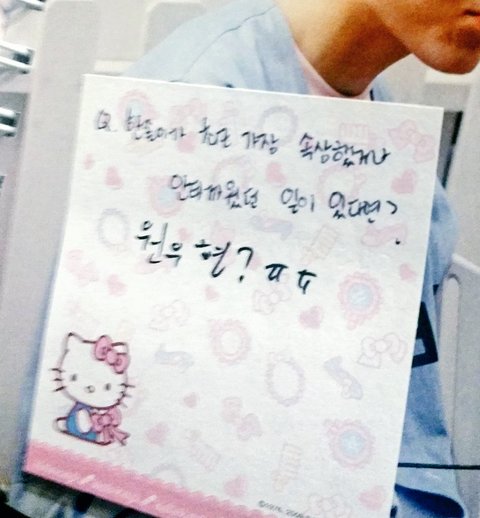 Q. 한솔이가 최근 가장 속상했거나
안타까웠던 일이 있다면?
원우 현? ㅠㅠ